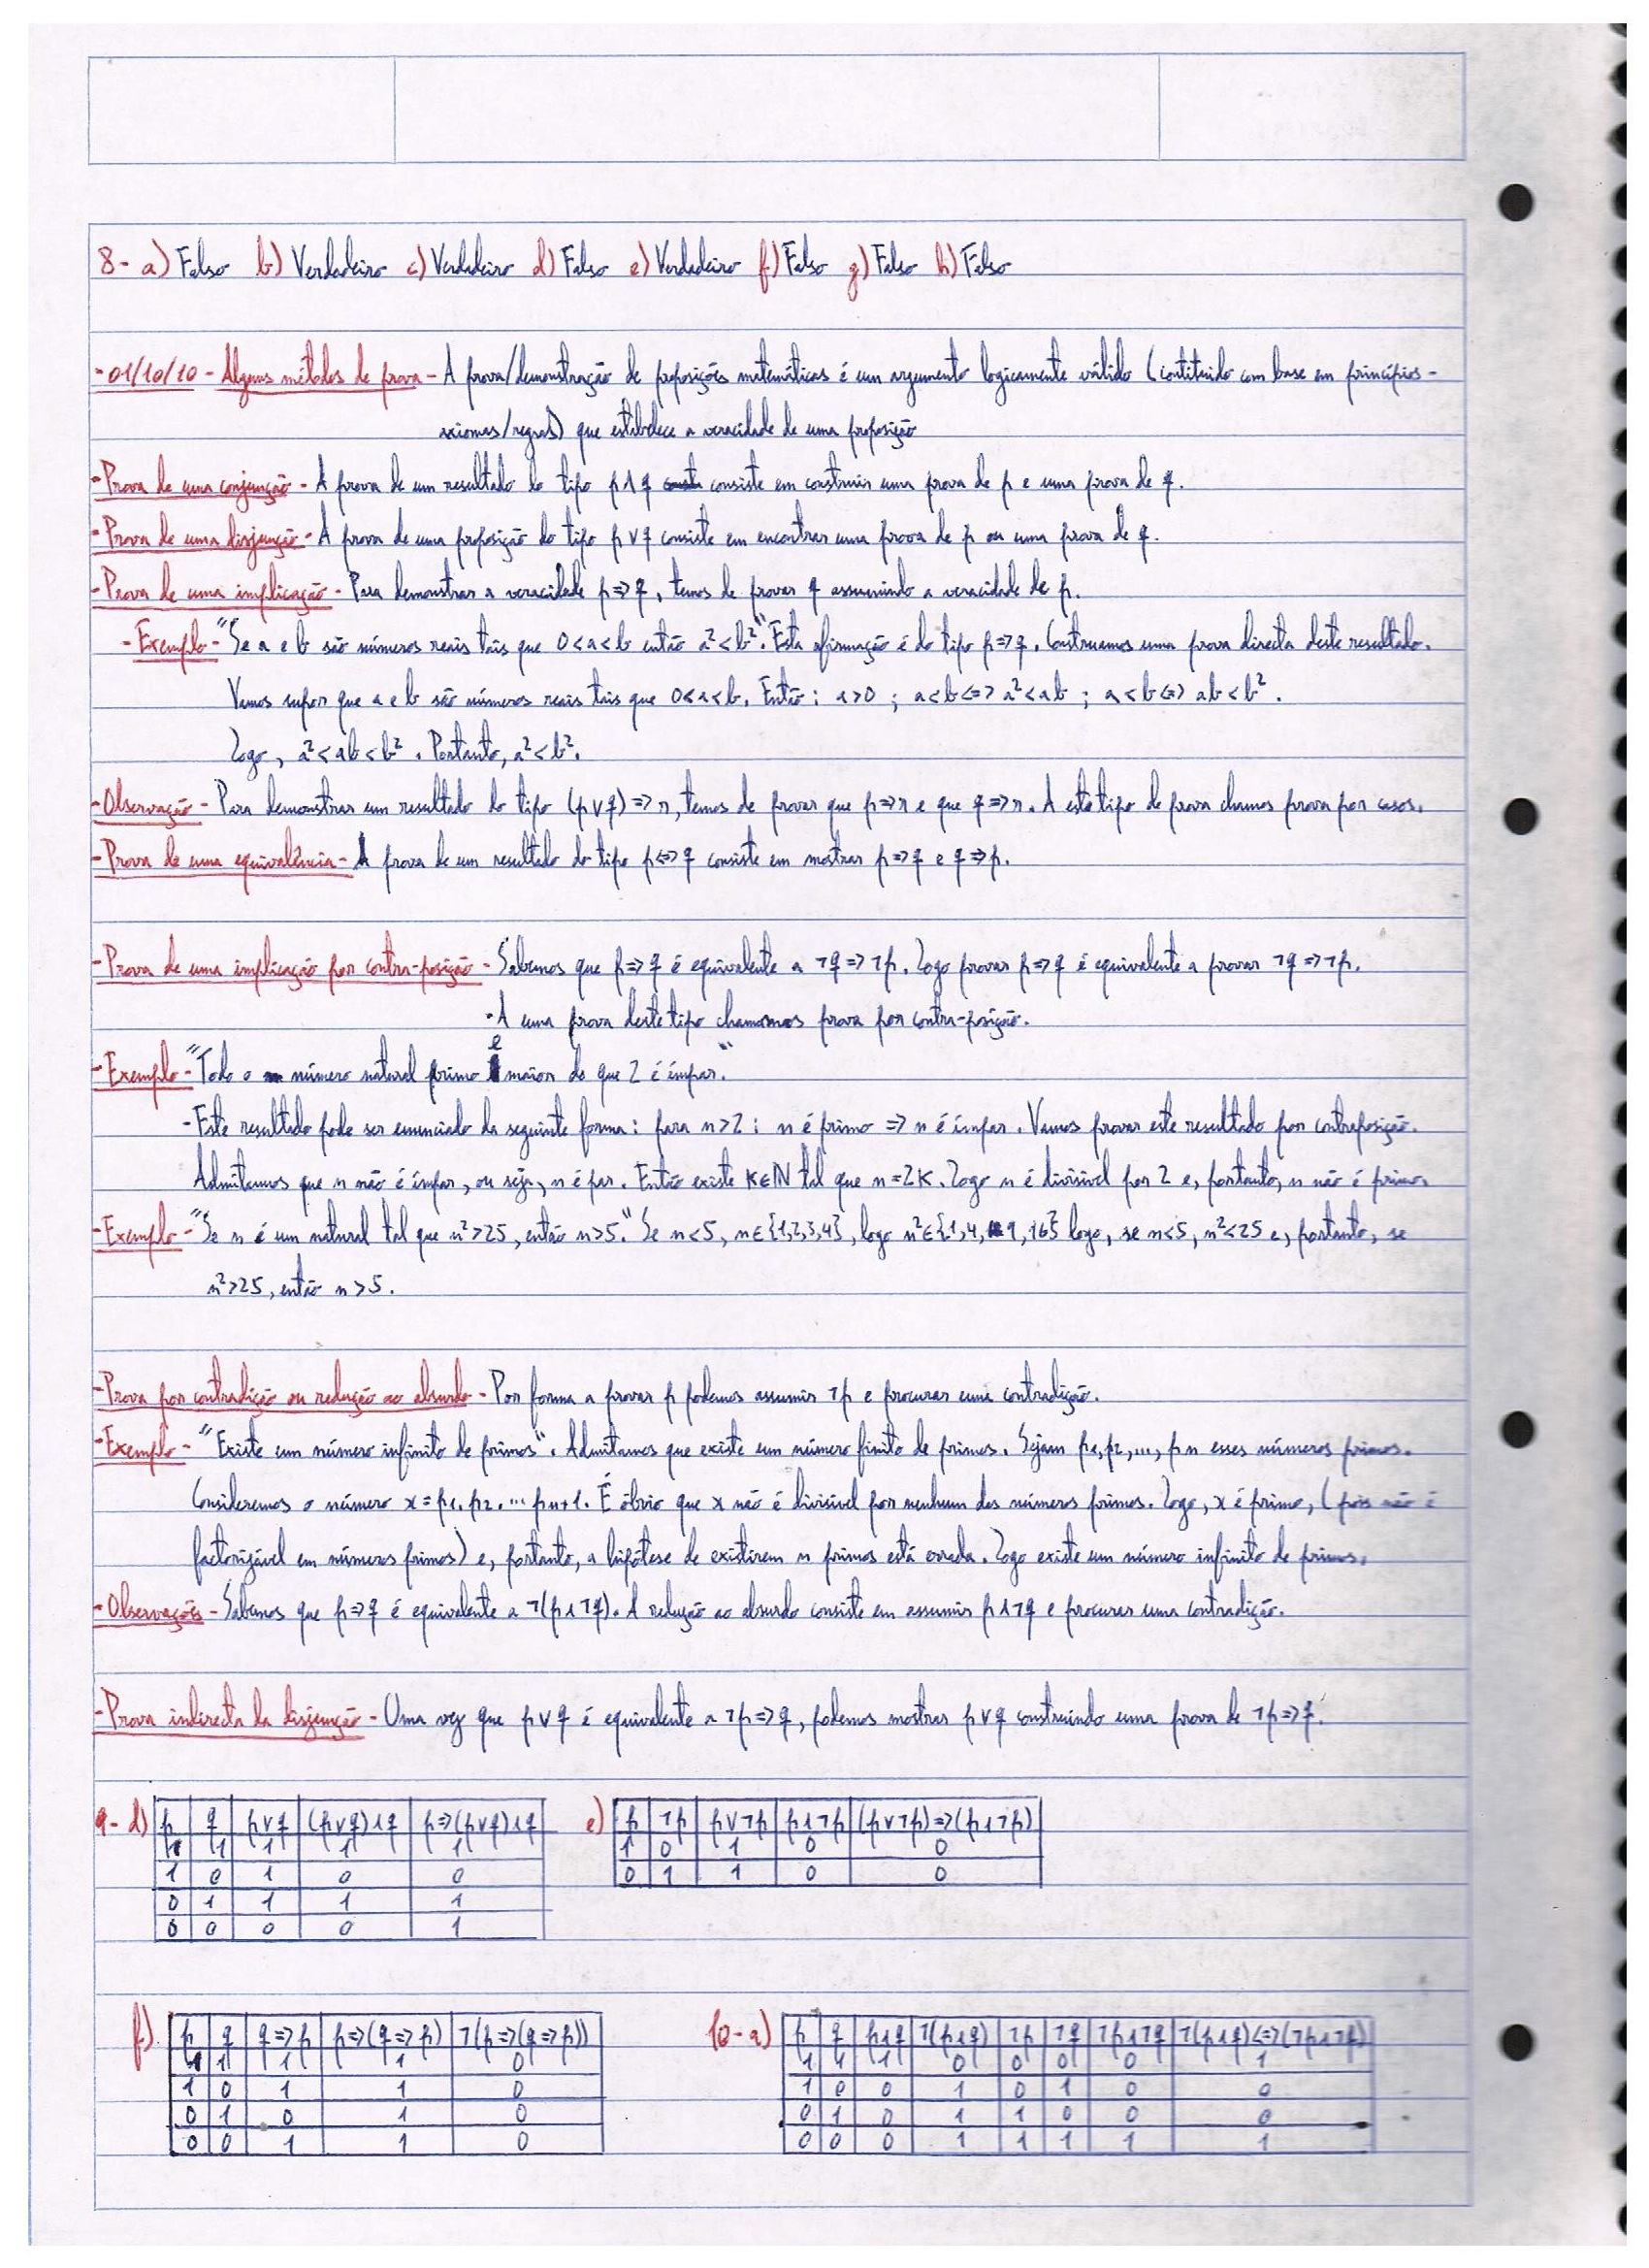 8- a) Falso b) Verdadeiro c) Verdadeiro d) Falso e) Verdadeiro f) Falso g) Falso h) Falso
-01/10/10 - Alguns métodos de prova - A prova/demonstração de proposições matemáticas é um argumento logicamente válido (contituido com base em princípios -
axiomas/regras) que estabelece a veracidade de uma proposição
-Prova de uma conjunção - A prova de um resultado do tipo p∧q consiste em construir uma prova de p e uma prova de q.
-Prova de uma disjunção - A prova de uma proposição do tipo p∨q consiste em encontrar uma prova de p ou uma prova de q.
-Prova de uma implicação - Para demonstrar a veracidade p=>q, temos de provar q assumindo a veracidade de p.
-Exemplo - "Se a e b são números reais tais que 0<a<b então a²<b²". Esta afirmação é do tipo p=>q. Construamos uma prova directa deste resultado.
Vamos supor que a e b são números reais tais que 0<a<b. Então: a>0 ; a<b<=>a²<ab ; a<b<=>ab<b².
Logo, a²<ab<b². Portanto, a²<b².
-Observação - Para demonstrar um resultado do tipo (p∨q)=>r, temos de provar que p=>r e que q=>r. A este tipo de prova chamos prova por casos.
-Prova de uma equivalência - A prova de um resultado do tipo p<=>q consiste em mostrar p=>q e q=>p.
-Prova de uma implicação por contra-posição - Sabemos que p=>q é equivalente a ¬q=>¬p. Logo provar p=>q é equivalente a provar ¬q=>¬p.
-A uma prova deste tipo chamamos prova por contra-posição.
-Exemplo - "Todo o número natural primo e maior do que 2 é ímpar."
-Este resultado pode ser enunciado da seguinte forma: para n>2: n é primo => n é ímpar. Vamos provar este resultado por contraposição.
Admitamos que n não é ímpar, ou seja, n é par. Então existe K∈ℕ tal que n=2K. Logo n é divisível por 2 e, portanto, n não é primo.
-Exemplo - "Se n é um natural tal que n²>25, então n>5." Se n<5, n∈{1,2,3,4}, logo n²∈{1,4,9,16} logo, se n<5, n²<25 e, portanto, se
n²>25, então n>5.
-Prova por contradição ou redução ao absurdo - Por forma a provar p podemos assumir ¬p e procurar uma contradição.
-Exemplo - "Existe um número infinito de primos". Admitamos que existe um número finito de primos. Sejam p1,p2,..., pn esses números primos.
Consideremos o número x=p1.p2. ... pn+1. É óbvio que x não é divisível por nenhum dos números primos. Logo, x é primo, (pois não é
factorizável em números primos) e, portanto, a hipótese de existirem n primos está errada. Logo existe um número infinito de primos.
-Observações - Sabemos que p=>q é equivalente a ¬(p∧¬q). A redução ao absurdo consiste em assumir p∧¬q e procurar uma contradição.
-Prova indirecta da disjunção - Uma vez que p∨q é equivalente a ¬p=>q, podemos mostrar p∨q construindo uma prova de ¬p=>q.
9- d) p q p∨q (p∨q)∧q p=>(p∨q)∧q
1 1 1 1 1
1 0 1 0 0
0 1 1 1 1
0 0 0 0 1
e) p ¬p p∨¬p p∧¬p (p∨¬p)=>(p∧¬p)
1 0 1 0 0
0 1 1 0 0
f) p q q=>p p=>(q=>p) ¬(p=>(q=>p))
1 1 1 1 0
1 0 1 1 0
0 1 0 1 0
0 0 1 1 0
10-a) p q p∧q ¬(p∧q) ¬p ¬q ¬p∧¬q ¬(p∧q)<=>(¬p∧¬q)
1 1 1 0 0 0 0 1
1 0 0 1 0 1 0 0
0 1 0 1 1 0 0 0
0 0 0 1 1 1 1 1